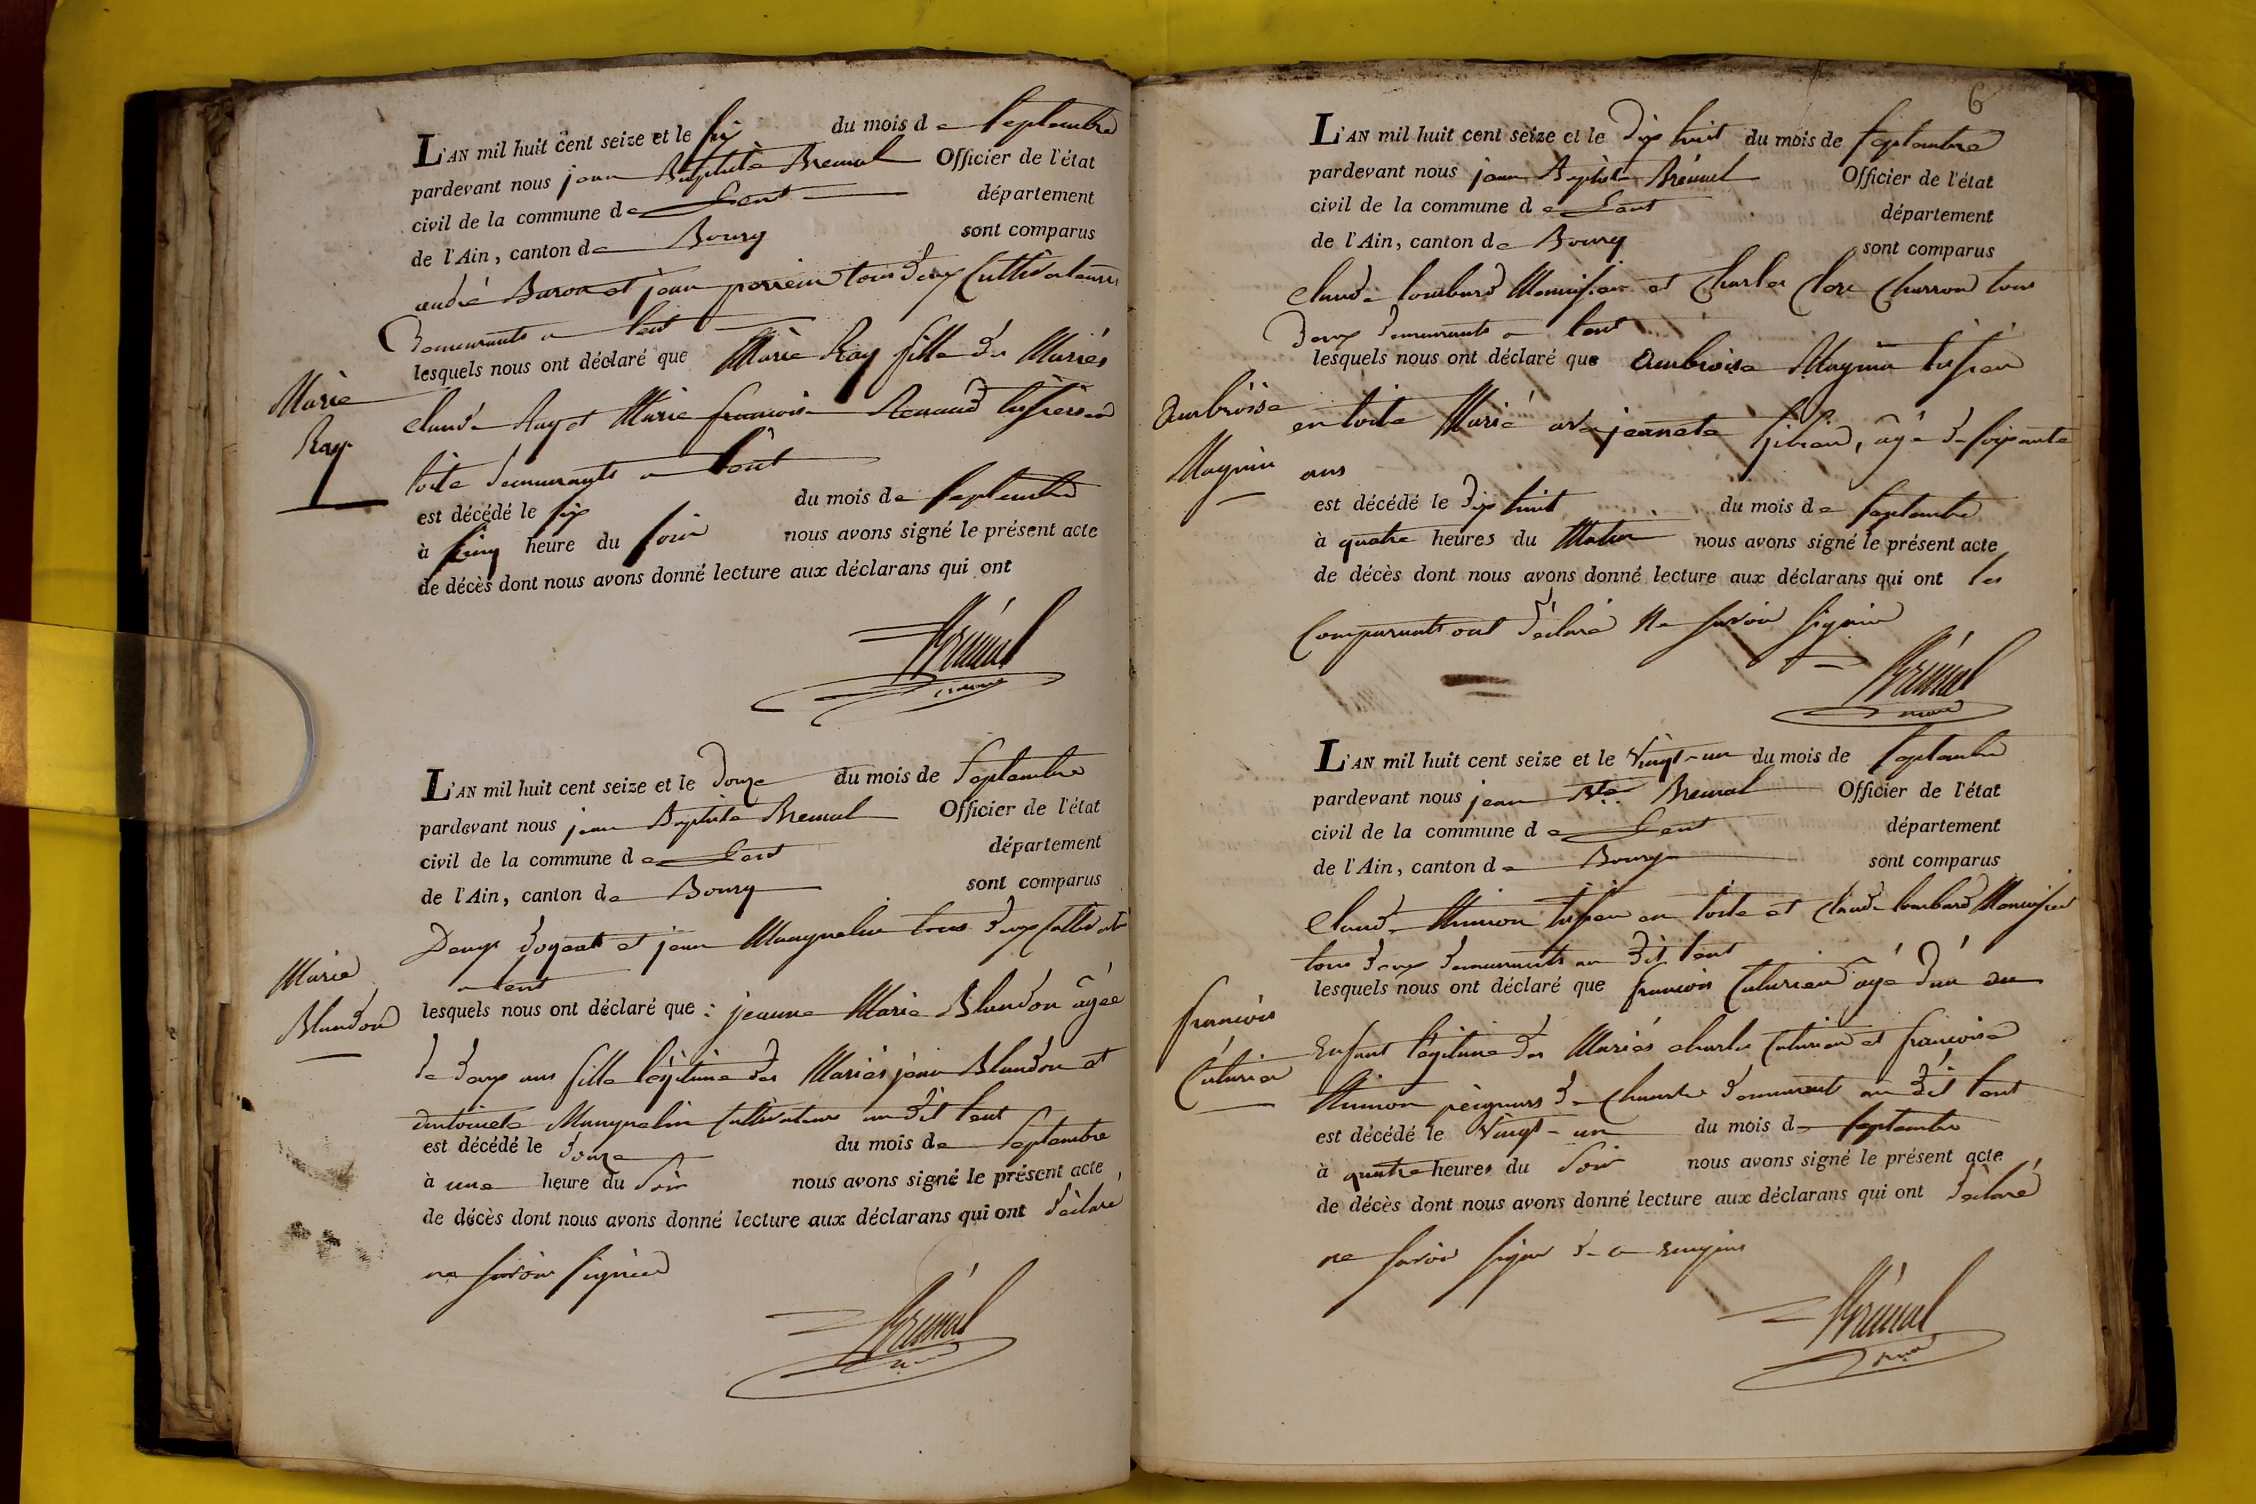 L'AN mil huit cent seize et le six du mois de Septembre
pardevant nous jean Baptiste Bremal Officier de l'état
civil de la commune de Lent département
de l'Ain, canton de Bourg sont comparus
andré Baron et jean perrein tous deux Cultivateurs
Demeurants a lent
lesquels nous ont déclaré que Marie Ray fille des Mariés
Marie
Ray
claude Ray et Marie francoise Renaud tissiers en
toile demeurants a lent
est décédé le six du mois de septembre
à cinq heure du soir nous avons signé le présent acte
de décès dont nous avons donné lecture aux déclarans qui ont
Brémal
L'AN mil huit cent seize et le douze du mois de Septembre
pardevant nous jean Baptiste Bremal Officier de l'état
civil de la commune de Lent département
de l'Ain, canton de Bourg sont comparus
Denys et jean Manguelin tous deux
a lent
Marie
Blandon
lesquels nous ont déclaré que : jeanne Marie Blandon âgée
de deux ans fille légitime des Mariés jean Blandon et
antoinete Manguelin Cultivateurs au dit lent
est décédé le douze du mois de Septembre
à une heure du soir nous avons signé le présent acte
de décès dont nous avons donné lecture aux déclarans qui ont déclaré
ne savoir signer
Brémal
6
L'AN mil huit cent seize et le dix huit du mois de septembre
pardevant nous jean Baptiste Brémal Officier de l'état
civil de la commune de Lent département
de l'Ain, canton de Bourg sont comparus
claude lombard Menuisier et Charles Clere Charron tous
deux demeurants a lent
lesquels nous ont déclaré que ambroise Magnin tissier
ambroise
Magnin
en toile Marié avec jeannete âgé de soixante
ans
est décédé le dix huit du mois de septembre
à quatre heures du Matin nous avons signé le présent acte
de décès dont nous avons donné lecture aux déclarans qui ont les
Comparants ont déclaré ne savoir signer
Brémal
L'AN mil huit cent seize et le vingt-un du mois de septembre
pardevant nous jean Bte Bremal Officier de l'état
civil de la commune de Lent département
de l'Ain, canton de Bourg sont comparus
claude tissier en toile et claude lombard Menuisier
tous deux demeurants au dit lent
lesquels nous ont déclaré que francois Caturier agé d'un an
francois
Caturier
Enfant légitime des Mariés charles Caturier et francoise
peigneurs de chanvre demeurant au dit lent
est décédé le vingt-un du mois de septembre
à quatre heures du soir nous avons signé le présent acte
de décès dont nous avons donné lecture aux déclarans qui ont déclaré
ne savoir signer de ce enquis
Brémal